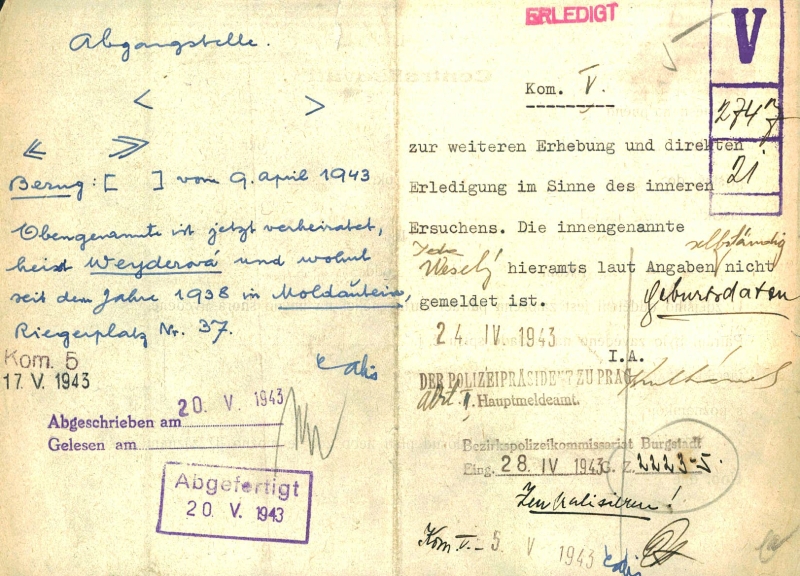 Abgangstelle.
< >
Bezug: [ ] vom 9. April 1943
Obengenannte ist jetzt verheiratet,
heisst Weyderová und wohnt
seit dem Jahre 1938 in Moldautein,
Riegerplatz Nr. 37.
Kom. 5
17 V. 1943
Abgeschrieben am 20 V 1943
Gelesen am
Abgefertigt
20 V. 1943
ERLEDIGT
V
274
21
Kom. V.
zur weiteren Erhebung und direkten
Erledigung im Sinne des inneren
Ersuchens. Die innengenannte
selbständig
Veselý hieramts laut Angaben nicht
Geburtsdaten
gemeldet ist.
24. IV. 1943
I.A.
DER POLIZEIPRÄSIDENT ZU PRAG
Abt. II, Hauptmeldeamt.
Bezirkspolizeikommissariat Burgstadt
Eing. 28. IV 1943 G. Z. 2223-5.
Zentralisieren!
Kom V. - 5 V 1943